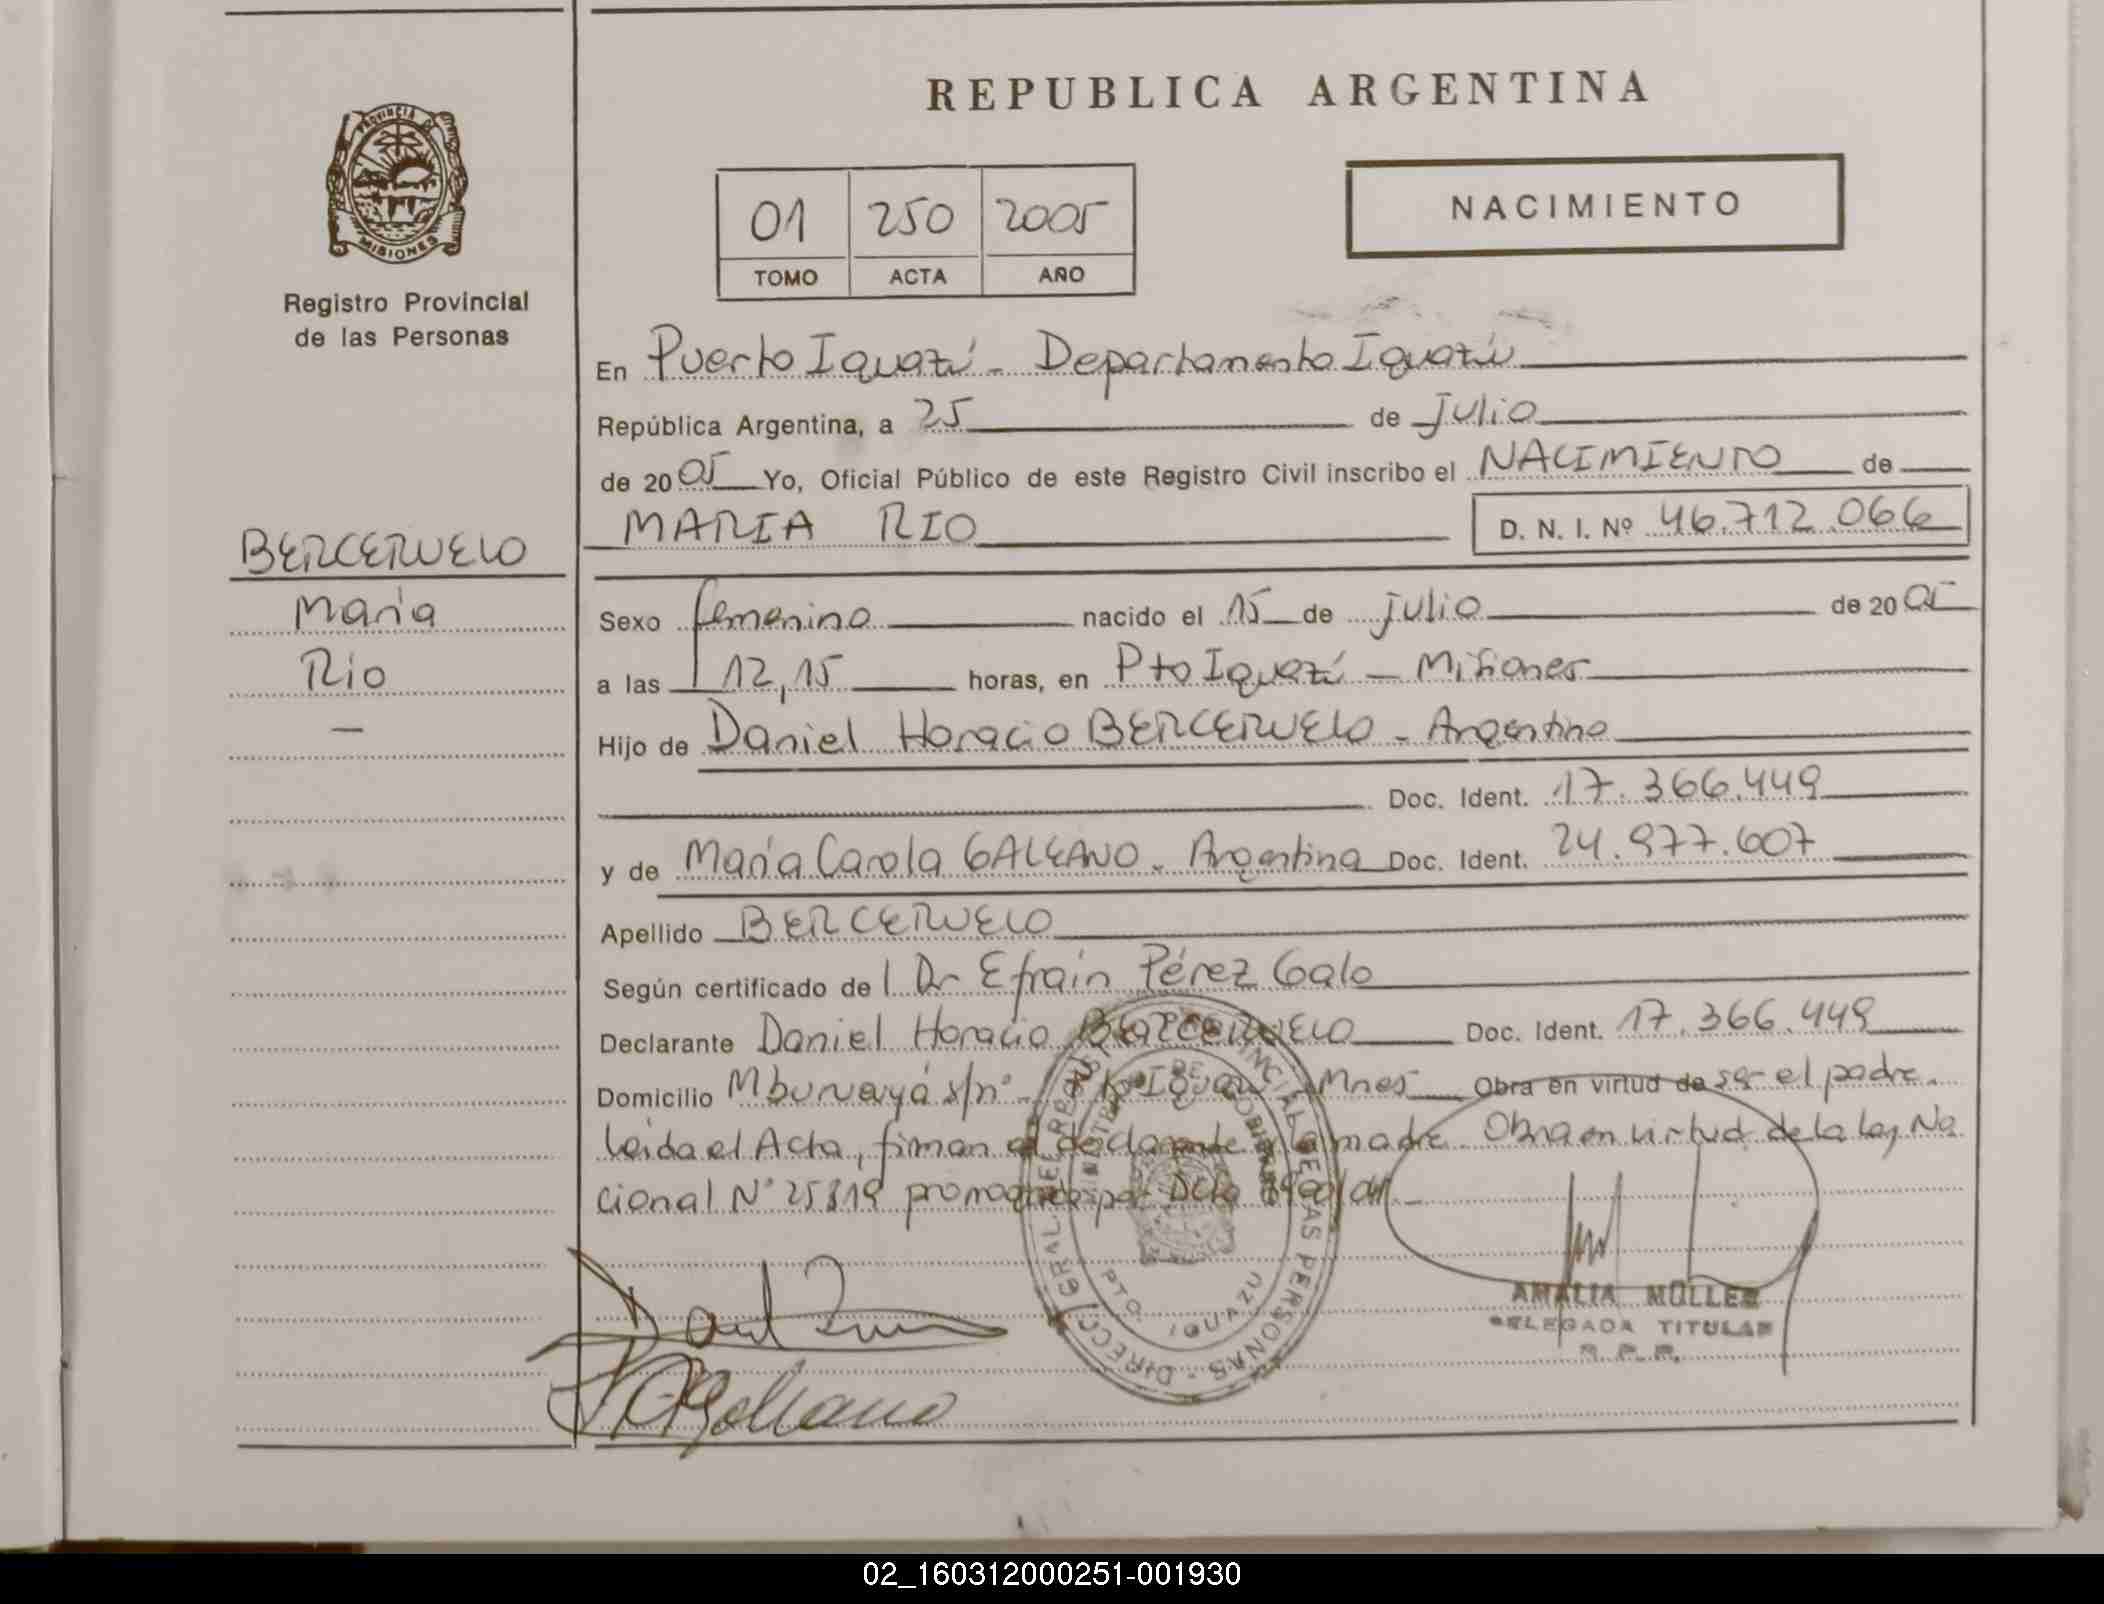 REPUBLICA ARGENTINA
PROVINCIA DE
MISIONES
Registro Provincial
de las Personas
01 250 2005
TOMO ACTA AÑO
NACIMIENTO
En Puerto Iguazú - Departamento Iguazú
República Argentina, a 25 de Julio
de 2005 Yo, Oficial Público de este Registro Civil inscribo el NACIMIENTO de
MARIA RIO D. N. I. Nº 46.712.066
BERCERUELO
María
Rio
—
Sexo femenino nacido el 15 de julio de 2005
a las 12,15 horas, en Pto Iguazú - Misiones
Hijo de Daniel Horacio BERCERUELO - Argentino
Doc. Ident. 17.366.449
y de María Carola GALEANO - Argentina Doc. Ident. 24.977.607
Apellido BERCERUELO
Según certificado de l Dr Efraín Pérez Galo
Declarante Daniel Horacio BERCERUELO Doc. Ident. 17.366.449
Domicilio s/nº - Mnes Obra en virtud de ser el padre.
Leida el Acta, firman el declarante y la madre. Obra en virtud de la Ley Na
cional Nº 25819
PTO. IGUAZU
AMALIA MULLER
DELEGADA TITULAR
R. P. P.
02_160312000251-001930